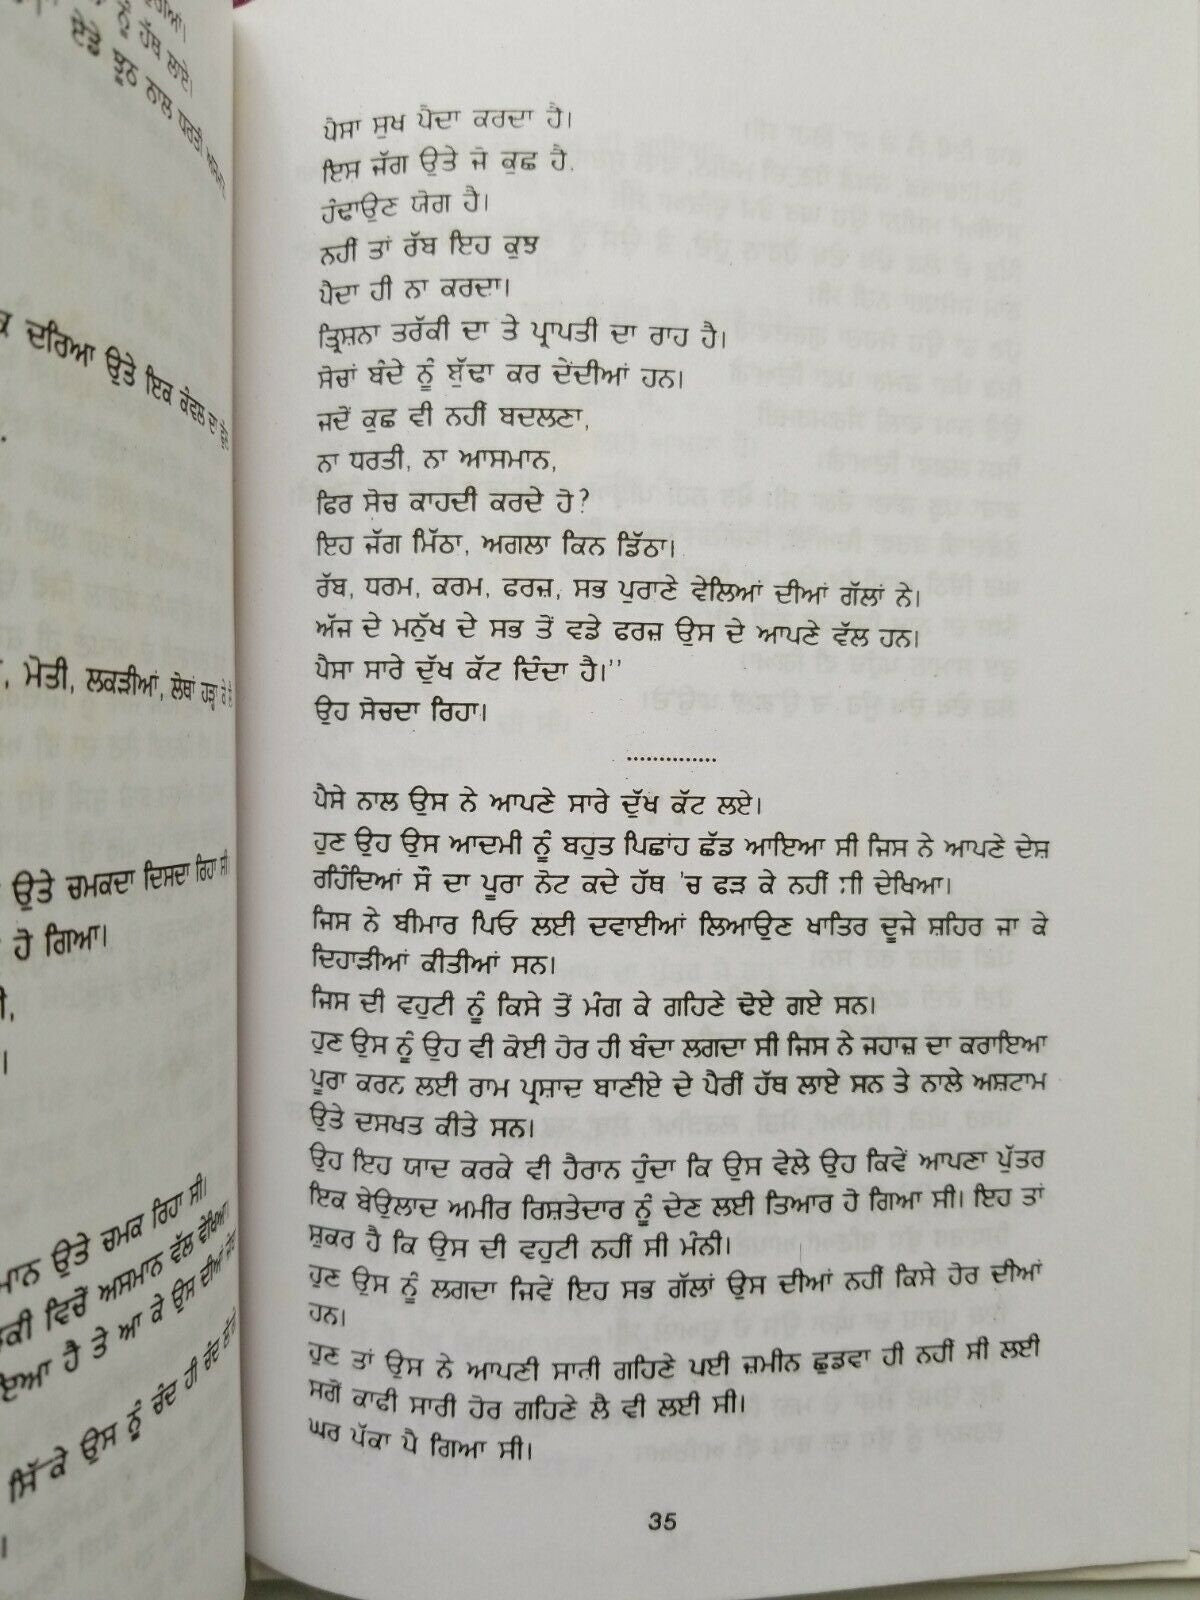 ਨੂੰ ਹੱਥ ਲਾਏ।
ਦਰਿਆ ਉਤੇ ਇਕ ਕੰਵਲ ਦਾ
ਮੋਤੀ, ਲਕੜੀਆਂ, ਲੋਥਾਂ ਹੜ੍ਹਾ ਕੇ
ਉਤੇ ਚਮਕਦਾ ਦਿਸਦਾ ਰਿਹਾ ਸੀ
ਹੋ ਗਿਆ।
ਉਤੇ ਚਮਕ ਰਿਹਾ ਸੀ।
ਵਿਚੋਂ ਅਸਮਾਨ ਵੱਲ ਵੇਖਿਆ।
ਹੈ ਤੇ ਆ ਕੇ ਉਸ ਦੀਆਂ
ਉਸ ਨੂੰ ਚੰਦ ਹੀ ਚੰਦ
ਪੈਸਾ ਸੁਖ ਪੈਦਾ ਕਰਦਾ ਹੈ।
ਇਸ ਜੱਗ ਉਤੇ ਜੋ ਕੁਛ ਹੈ,
ਹੰਢਾਉਣ ਯੋਗ ਹੈ।
ਨਹੀਂ ਤਾਂ ਰੱਬ ਇਹ ਕੁਝ
ਪੈਦਾ ਹੀ ਨਾ ਕਰਦਾ।
ਤ੍ਰਿਸ਼ਨਾ ਤਰੱਕੀ ਦਾ ਤੇ ਪ੍ਰਾਪਤੀ ਦਾ ਰਾਹ ਹੈ।
ਸੋਚਾਂ ਬੰਦੇ ਨੂੰ ਬੁੱਢਾ ਕਰ ਦੇਂਦੀਆਂ ਹਨ।
ਜਦੋਂ ਕੁਛ ਵੀ ਨਹੀਂ ਬਦਲਣਾ,
ਨਾ ਧਰਤੀ, ਨਾ ਆਸਮਾਨ,
ਫਿਰ ਸੋਚ ਕਾਹਦੀ ਕਰਦੇ ਹੋ?
ਇਹ ਜੱਗ ਮਿੱਠਾ, ਅਗਲਾ ਕਿਨ ਡਿੱਠਾ।
ਰੱਬ, ਧਰਮ, ਕਰਮ, ਫਰਜ਼, ਸਭ ਪੁਰਾਣੇ ਵੇਲਿਆਂ ਦੀਆਂ ਗੱਲਾਂ ਨੇ।
ਅੱਜ ਦੇ ਮਨੁੱਖ ਦੇ ਸਭ ਤੋਂ ਵਡੇ ਫਰਜ਼ ਉਸ ਦੇ ਆਪਣੇ ਵੱਲ ਹਨ।
ਪੈਸਾ ਸਾਰੇ ਦੁੱਖ ਕੱਟ ਦਿੰਦਾ ਹੈ।''
ਉਹ ਸੋਚਦਾ ਰਿਹਾ।
..............
ਪੈਸੇ ਨਾਲ ਉਸ ਨੇ ਆਪਣੇ ਸਾਰੇ ਦੁੱਖ ਕੱਟ ਲਏ।
ਹੁਣ ਉਹ ਉਸ ਆਦਮੀ ਨੂੰ ਬਹੁਤ ਪਿਛਾਂਹ ਛੱਡ ਆਇਆ ਸੀ ਜਿਸ ਨੇ ਆਪਣੇ ਦੇਸ਼
ਰਹਿੰਦਿਆਂ ਸੌ ਦਾ ਪੂਰਾ ਨੋਟ ਕਦੇ ਹੱਥ 'ਚ ਫੜ ਕੇ ਨਹੀਂ ਸੀ ਦੇਖਿਆ।
ਜਿਸ ਨੇ ਬੀਮਾਰ ਪਿਓ ਲਈ ਦਵਾਈਆਂ ਲਿਆਉਣ ਖਾਤਿਰ ਦੂਜੇ ਸ਼ਹਿਰ ਜਾ ਕੇ
ਦਿਹਾੜੀਆਂ ਕੀਤੀਆਂ ਸਨ।
ਜਿਸ ਦੀ ਵਹੁਟੀ ਨੂੰ ਕਿਸੇ ਤੋਂ ਮੰਗ ਕੇ ਗਹਿਣੇ ਢੋਏ ਗਏ ਸਨ।
ਹੁਣ ਉਸ ਨੂੰ ਉਹ ਵੀ ਕੋਈ ਹੋਰ ਹੀ ਬੰਦਾ ਲਗਦਾ ਸੀ ਜਿਸ ਨੇ ਜਹਾਜ਼ ਦਾ ਕਰਾਇਆ
ਪੂਰਾ ਕਰਨ ਲਈ ਰਾਮ ਪ੍ਰਸ਼ਾਦ ਬਾਣੀਏ ਦੇ ਪੈਰੀਂ ਹੱਥ ਲਾਏ ਸਨ ਤੇ ਨਾਲੇ ਅਸ਼ਟਾਮ
ਉਤੇ ਦਸਖਤ ਕੀਤੇ ਸਨ।
ਉਹ ਇਹ ਯਾਦ ਕਰਕੇ ਵੀ ਹੈਰਾਨ ਹੁੰਦਾ ਕਿ ਉਸ ਵੇਲੇ ਉਹ ਕਿਵੇਂ ਆਪਣਾ ਪੁੱਤਰ
ਇਕ ਬੇਉਲਾਦ ਅਮੀਰ ਰਿਸ਼ਤੇਦਾਰ ਨੂੰ ਦੇਣ ਲਈ ਤਿਆਰ ਹੋ ਗਿਆ ਸੀ। ਇਹ ਤਾਂ
ਸ਼ੁਕਰ ਹੈ ਕਿ ਉਸ ਦੀ ਵਹੁਟੀ ਨਹੀਂ ਸੀ ਮੰਨੀ।
ਹੁਣ ਉਸ ਨੂੰ ਲਗਦਾ ਜਿਵੇਂ ਇਹ ਸਭ ਗੱਲਾਂ ਉਸ ਦੀਆਂ ਨਹੀਂ ਕਿਸੇ ਹੋਰ ਦੀਆਂ
ਹਨ।
ਹੁਣ ਤਾਂ ਉਸ ਨੇ ਆਪਣੀ ਸਾਰੀ ਗਹਿਣੇ ਪਈ ਜ਼ਮੀਨ ਛੁਡਵਾ ਹੀ ਨਹੀਂ ਸੀ ਲਈ
ਸਗੋਂ ਕਾਫੀ ਸਾਰੀ ਹੋਰ ਗਹਿਣੇ ਲੈ ਵੀ ਲਈ ਸੀ।
ਘਰ ਪੱਕਾ ਪੈ ਗਿਆ ਸੀ।
35